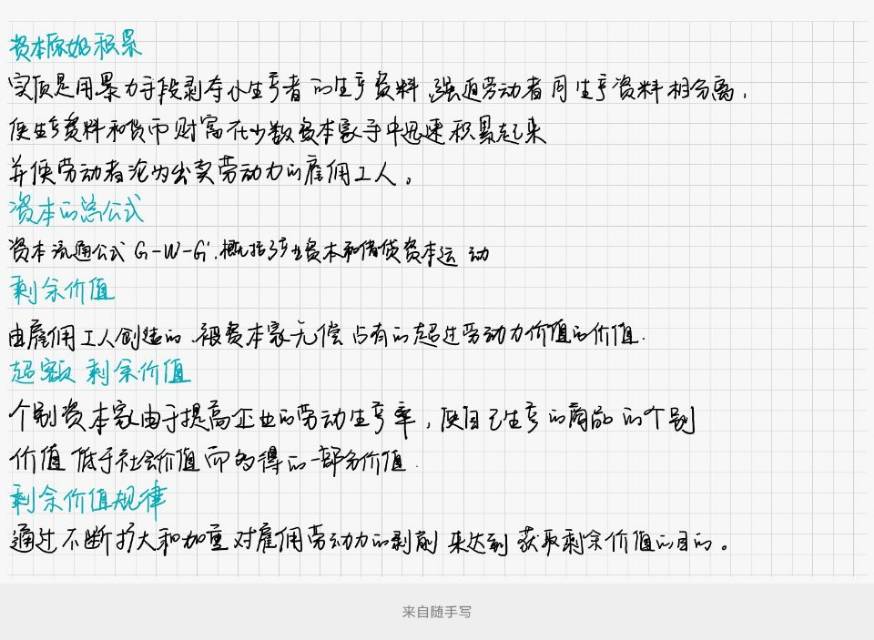 资本原始积累
实质是用暴力手段剥夺小生产者的生产资料，强迫劳动者同生产资料相分离，
使生产资料和货币财富在少数资本家手中迅速积累起来
并使劳动者沦为出卖劳动力的雇佣工人。
资本的总公式
资本流通公式 G-W-G'.概括了产业资本和借贷资本运动
剩余价值
由雇佣工人创造的.被资本家无偿占有的超过劳动力价值的价值.
超额剩余价值
个别资本家由于提高企业的劳动生产率，使自己生产的商品的个别
价值低于社会价值而多得的一部分价值.
剩余价值规律
通过不断扩大和加重对雇佣劳动力的剥削来达到获取剩余价值的目的。
来自随手写